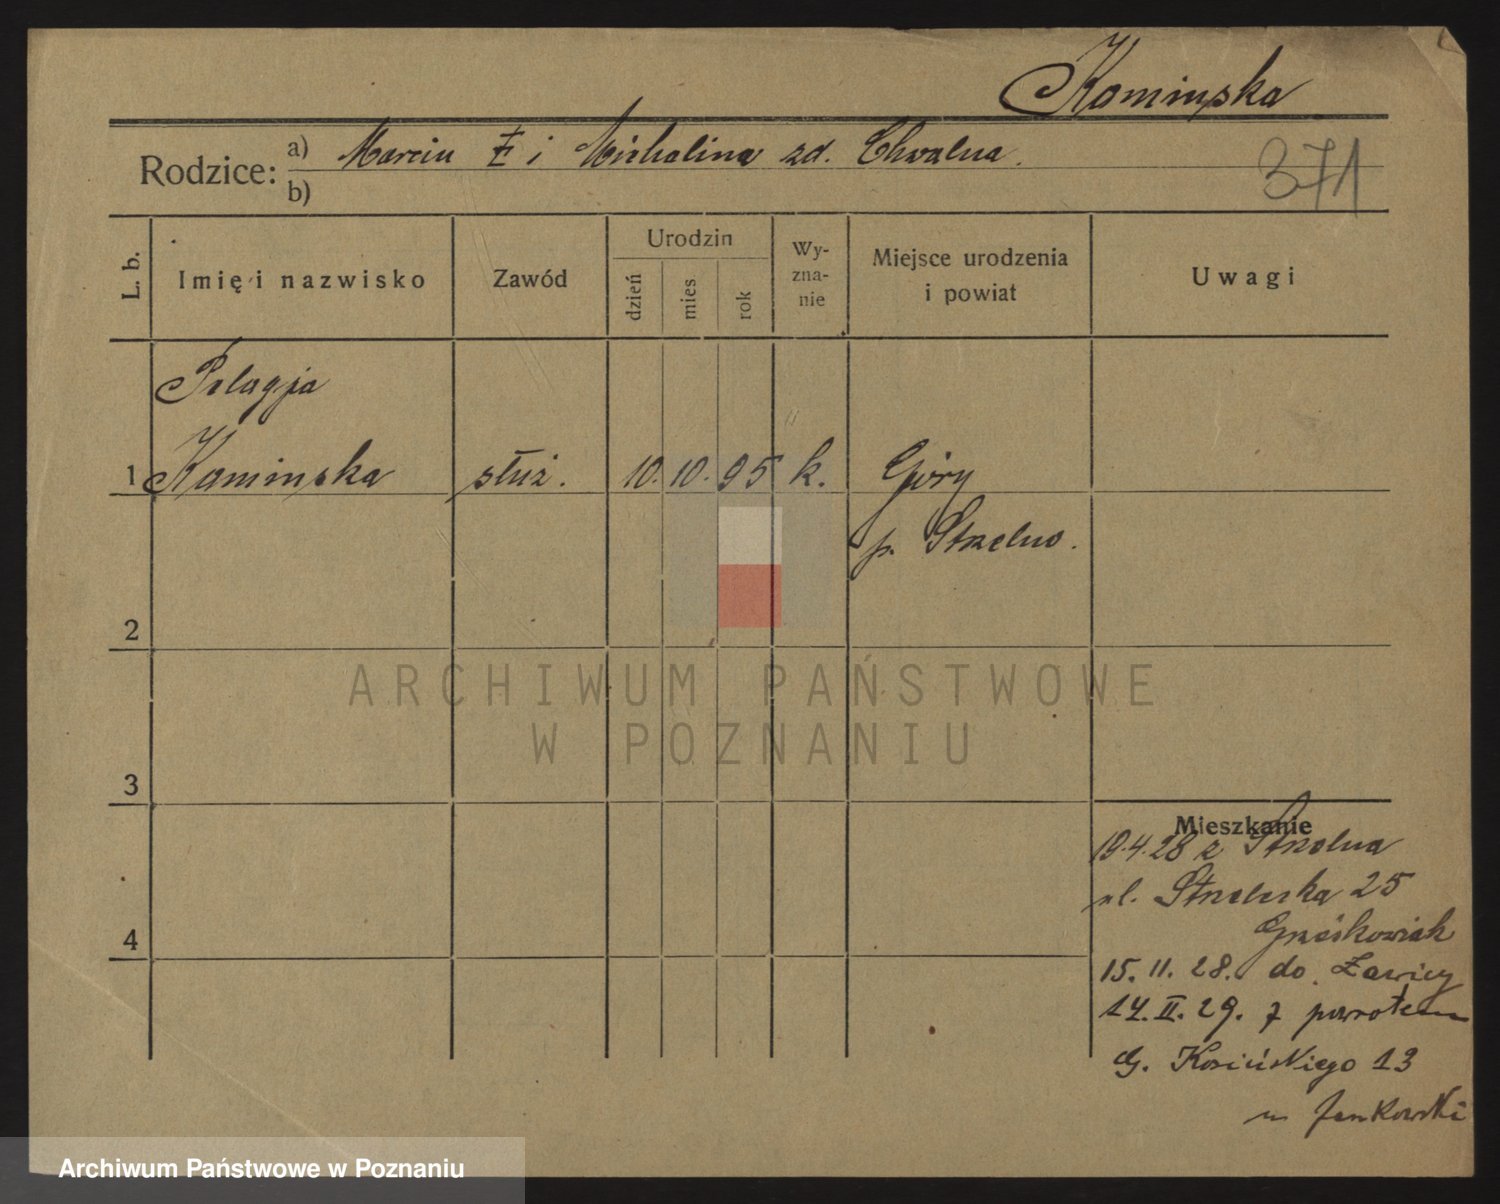 Kaminska
Rodzice: a) Marcin i Michalina zd. Chwalna.
b)
371
L. b.
Imię i nazwisko
Zawód
Urodzin
dzień
mies
rok
Wy-
zna-
nie
Miejsce urodzenia
i powiat
Uwagi
Pelagja
1 Kaminska służ. 10. 10. 95 k. Góry
p. Strzelno.
2
ARCHIWUM PAŃSTWOWE
W POZNANIU
3
Mieszkanie
19.4.28 z Strzelna
ul. Strzelecka 25
Grześkowiak
4
15. 11. 28. do Ławicy
14. II. 29. z powrotem
G. Kosińskiego 13
u Jankowski
Archiwum Państwowe w Poznaniu